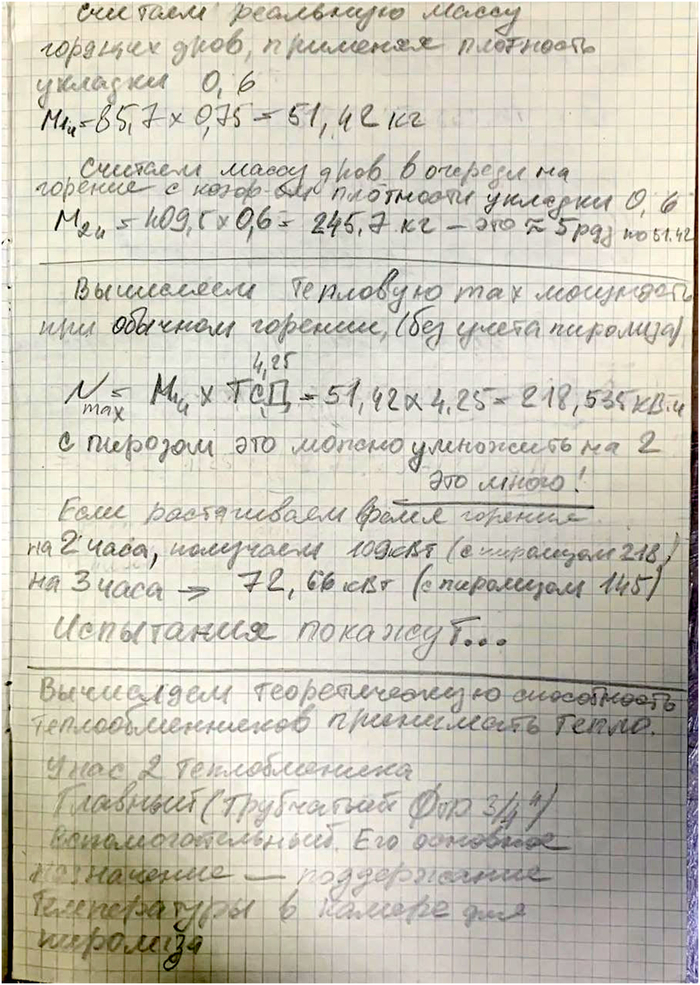 Считаем реальную массу
горящих дров, применяя плотность
укладки 0,6
М1и=85,7×0,75=51,42 кг
Считаем массу дров в очереди на
горение с коэф-ом плотности укладки 0,6
М2и = 409,5×0,6= 245,7 кг – это ≈ 5 раз по 51.42
Вычисляем тепловую max мощность
при обычном горении, (без учета пиролиза)
4,25
Nmax = М1и × ТСД = 51,42×4,25= 218,535 кВ.ч
с пирозом это можно умножить на 2
это много!
Если растягиваем время горения
на 2 часа, получаем 109кВт (с пиролизом 218)
на 3 часа → 72,66 кВт (с пиролизом 145)
Испытания покажут...
Вычисляем теоретическую способность
теплообменников принимать тепло.
У нас 2 теплобменика
Главный (трубчатый Фтр 3/4")
Вспомогательный. Его основное
назначение — поддержание
температуры в камере для
пиролиза